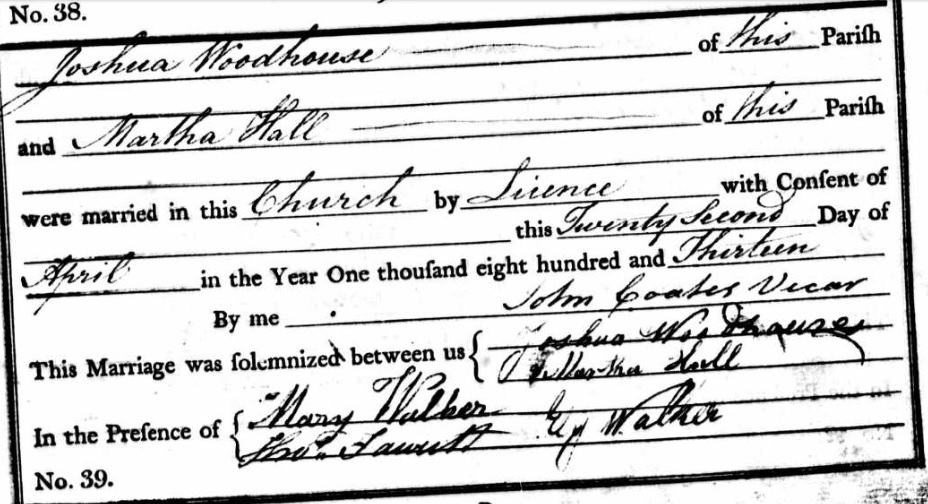 No. 38.
Joshua Woodhouse of this Pariſh
and Martha Hall of this Pariſh
were married in this Church by Licence with Conſent of
this Twenty Second Day of
April in the Year One thouſand eight hundred and Thirteen
By me John Coates Vicar
This Marriage was ſolemnized between us { Joshua Woodhouse
Martha Hall
In the Preſence of { Mary Walker
Thos. Walker
No. 39.